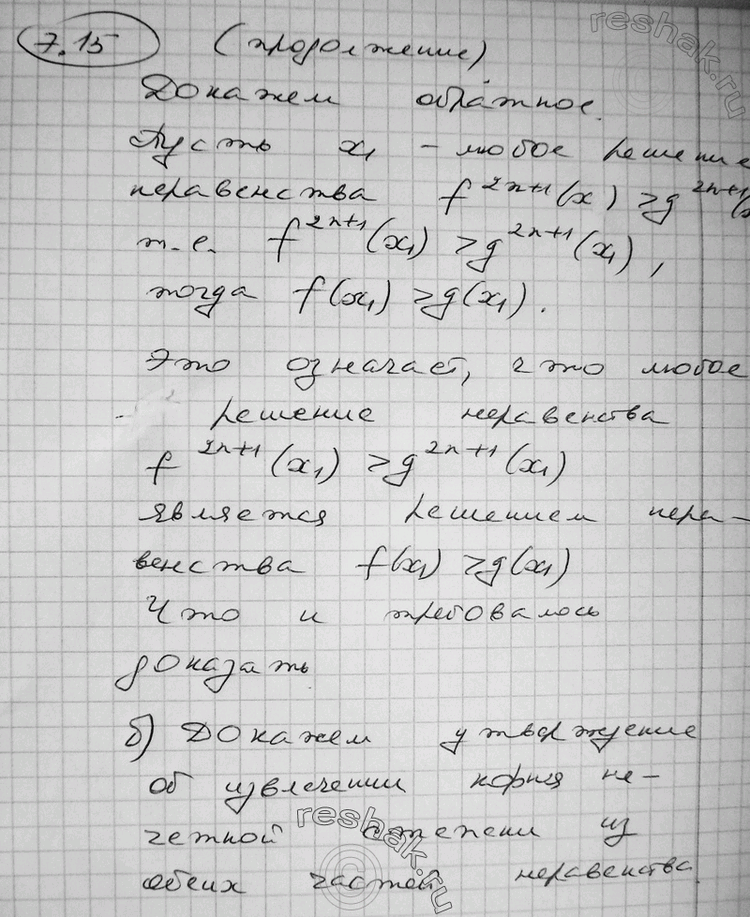 7.15 (продолжение)
Докажем обратное.
Пусть x₁ – любое решение
неравенства f²ⁿ⁺¹(x) ≥ g²ⁿ⁺¹(x
т.е. f²ⁿ⁺¹(x₁) ≥ g²ⁿ⁺¹(x₁),
тогда f(x₁) ≥ g(x₁).
Это означает, что любое
решение неравенства
f²ⁿ⁺¹(x₁) ≥ g²ⁿ⁺¹(x₁)
является решением нера-
венства f(x₁) ≥ g(x₁)
Что и требовалось
доказать.
б) Докажем утверждение
об извлечении корня не-
четной степени из
обеих частей неравенства
reshak.ru
reshak.ru